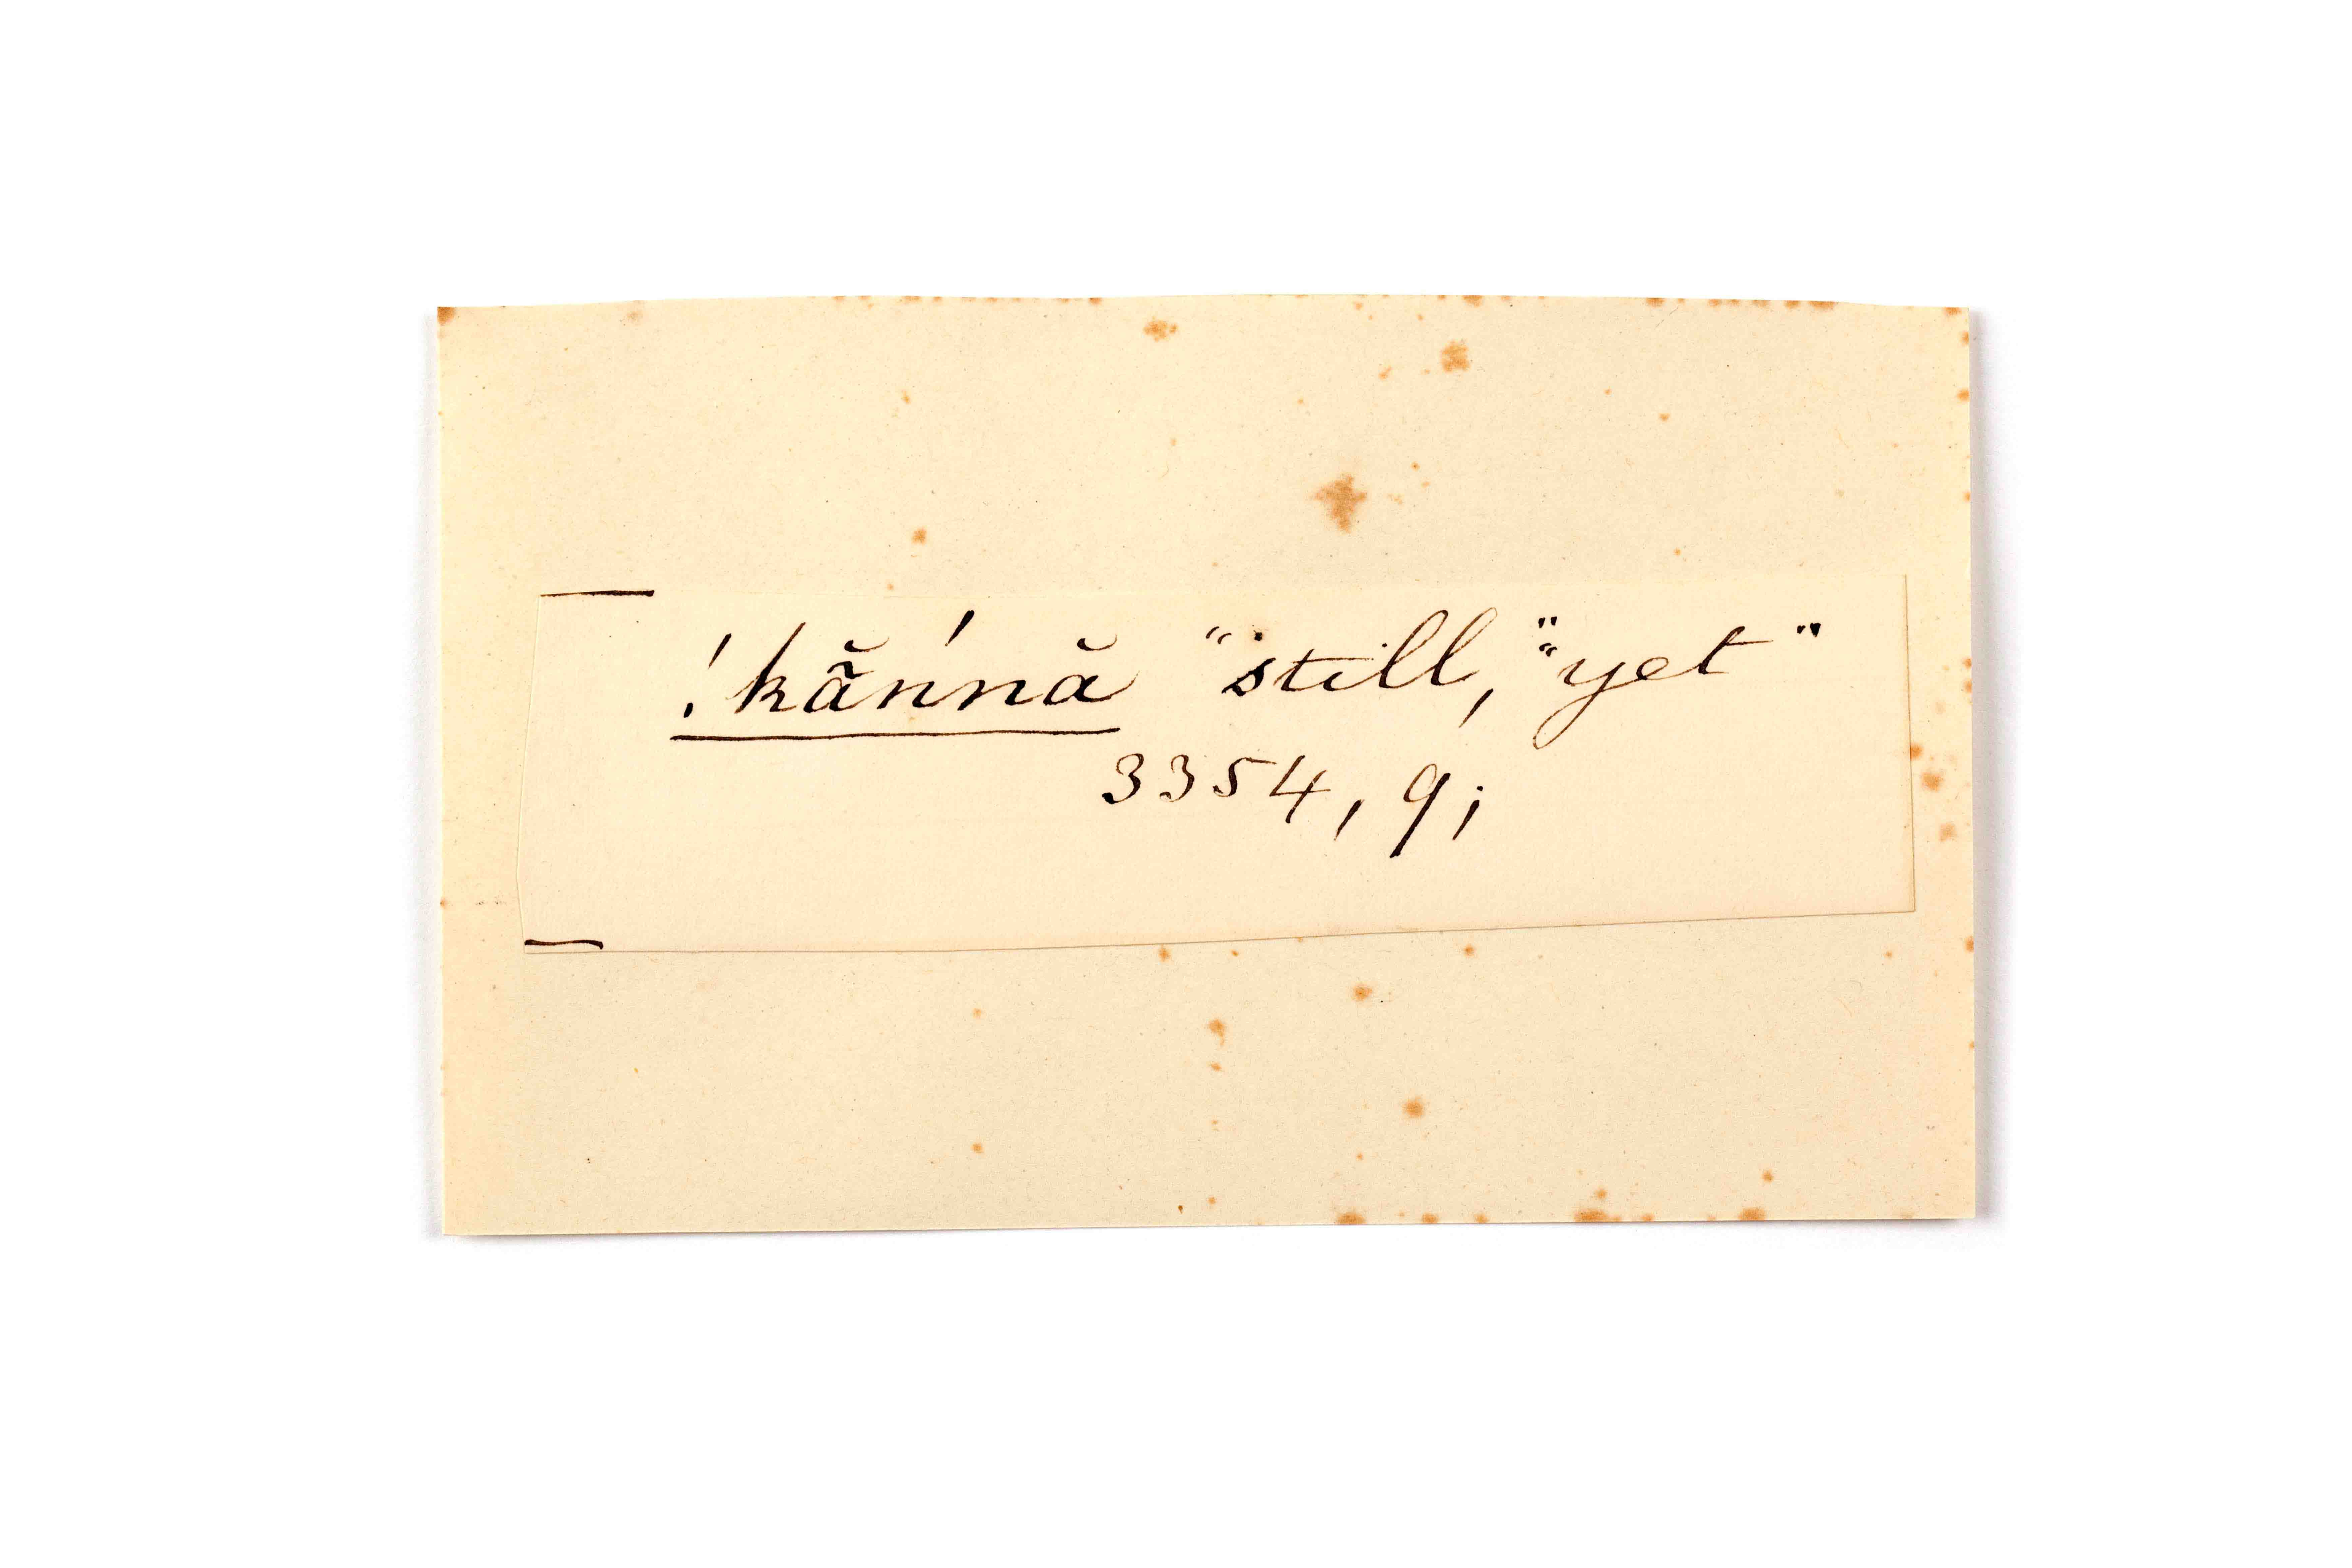 !kã̆n´nă "still," "yet"
3354, 9;